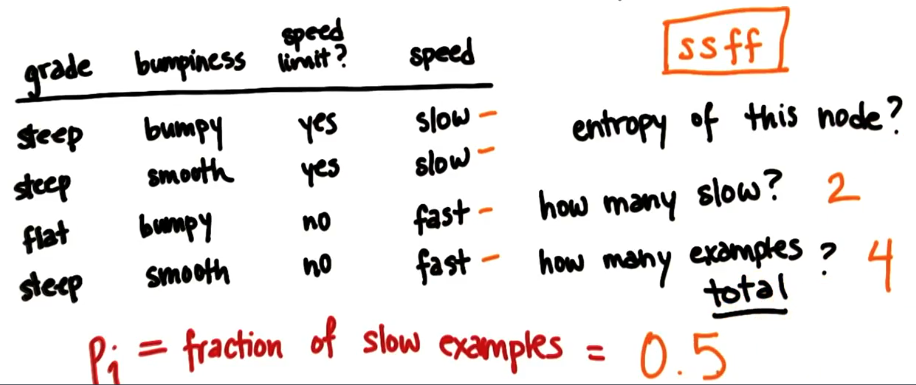 grade bumpiness speed limit? speed
steep bumpy yes slow -
steep smooth yes slow -
flat bumpy no fast -
steep smooth no fast -
ssff
entropy of this node?
how many slow? 2
how many examples total? 4
Pi = fraction of slow examples = 0.5